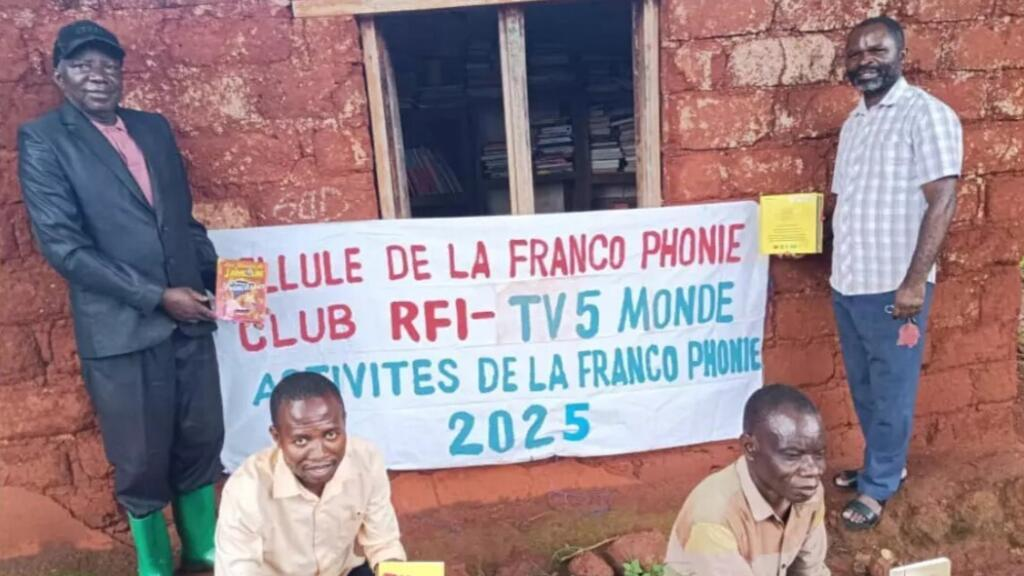 LLULE DE LA FRANCO PHONIE
CLUB RFI- TV5 MONDE
ACTIVITES DE LA FRANCO PHONIE
2025